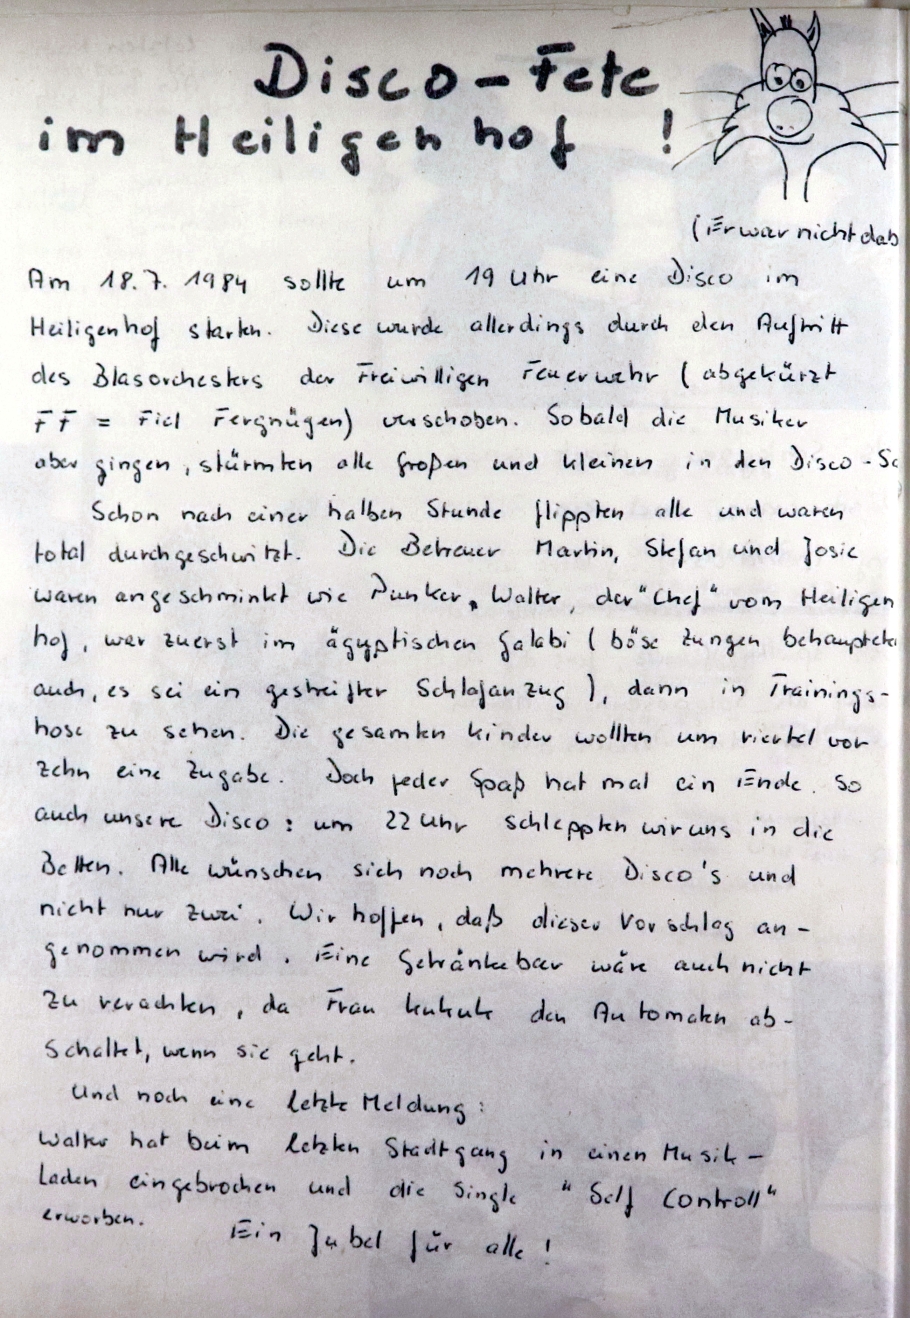 Disco-Fete
im Heiligenhof !
(Er war nicht dab
Am 18.7.1984 sollte um 19 Uhr eine Disco im
Heiligenhof starten. Diese wurde allerdings durch den Auftritt
des Blasorchesters der Freiwilligen Feuerwehr (abgekürzt
FF = Fiel Fergnügen) verschoben. Sobald die Musiker
aber gingen, stürmten alle Großen und kleinen in den Disco-Sa
Schon nach einer halben Stunde flippten alle und waren
total durchgeschwitzt. Die Betreuer Martin, Stefan und Josie
waren angeschminkt wie Punker. Walter, der "Chef" vom Heiligen
hof, war zuerst im ägyptischen Galabi (böse Zungen behaupteten
auch, es sei ein gestreifter Schlafanzug), dann in Trainings-
hose zu sehen. Die gesamten Kinder wollten um viertel vor
zehn eine Zugabe. Doch jeder Spaß hat mal ein Ende. So
auch unsere Disco: um 22 Uhr schleppten wir uns in die
Betten. Alle wünschen sich noch mehrere Disco's und
nicht nur zwei. Wir hoffen, daß dieser Vorschlag an-
genommen wird. Eine Getränkebar wäre auch nicht
zu verachten, da Frau Kukuk den Automaten ab-
schaltet, wenn sie geht.
Und noch eine letzte Meldung:
Walter hat beim letzten Stadtgang in einen Musik-
laden eingebrochen und die Single "Self Controll"
erworben.
Ein Jubel für alle!